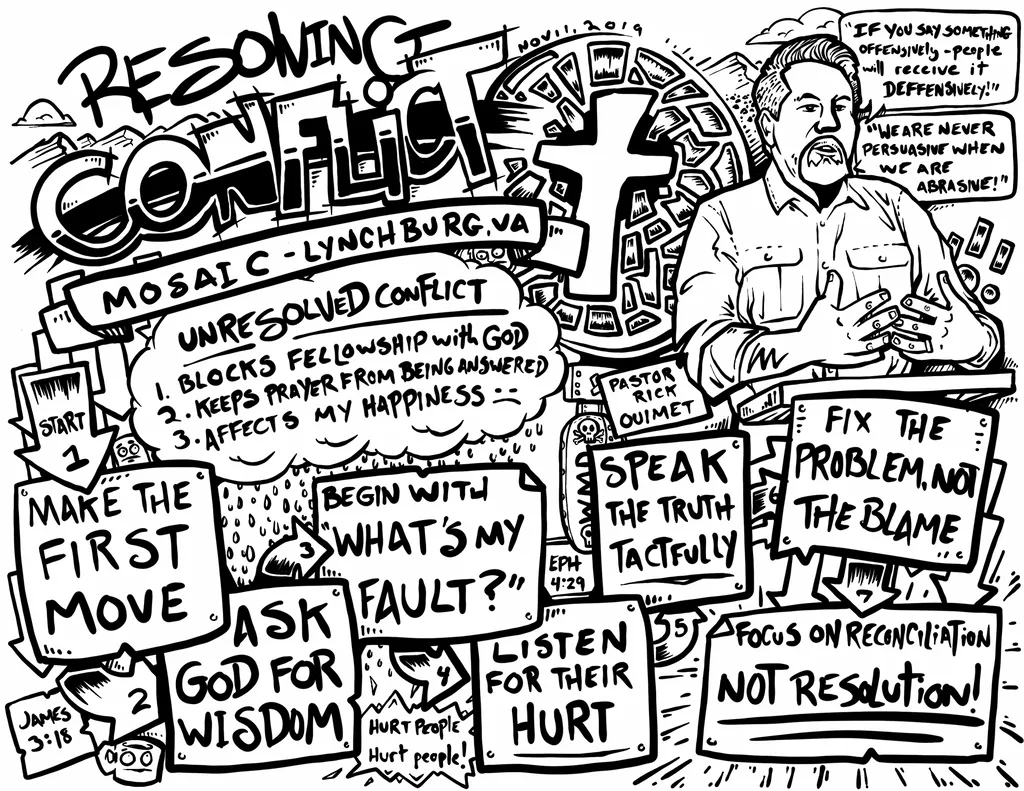 RESOLVING
CONFLICT
NOV 11, 2019
MOSAIC - LYNCHBURG, VA
"IF YOU SAY SOMETHING
OFFENSIVELY - people
will receive it
DEFFENSIVELY!"
"WE ARE NEVER
PERSUASIVE WHEN
WE ARE
ABRASIVE!"
UNRESOLVED CONFLICT
1. BLOCKS FELLOWSHIP with GOD
2. KEEPS PRAYER FROM BEING ANSWERED
3. AFFECTS MY HAPPINESS
PASTOR
RICK
OUIMET
START
1
MAKE THE
FIRST
MOVE
2
JAMES
3:18
ASK
GOD FOR
WISDOM
3
BEGIN WITH
"WHAT'S MY
FAULT?"
4
HURT PEOPLE
Hurt people!
LISTEN
FOR THEIR
HURT
5
EPH
4:29
SPEAK
THE TRUTH
TACTFULLY
6
FIX THE
PROBLEM, NOT
THE BLAME
7
FOCUS ON RECONCILIATION
NOT RESOLUTION!